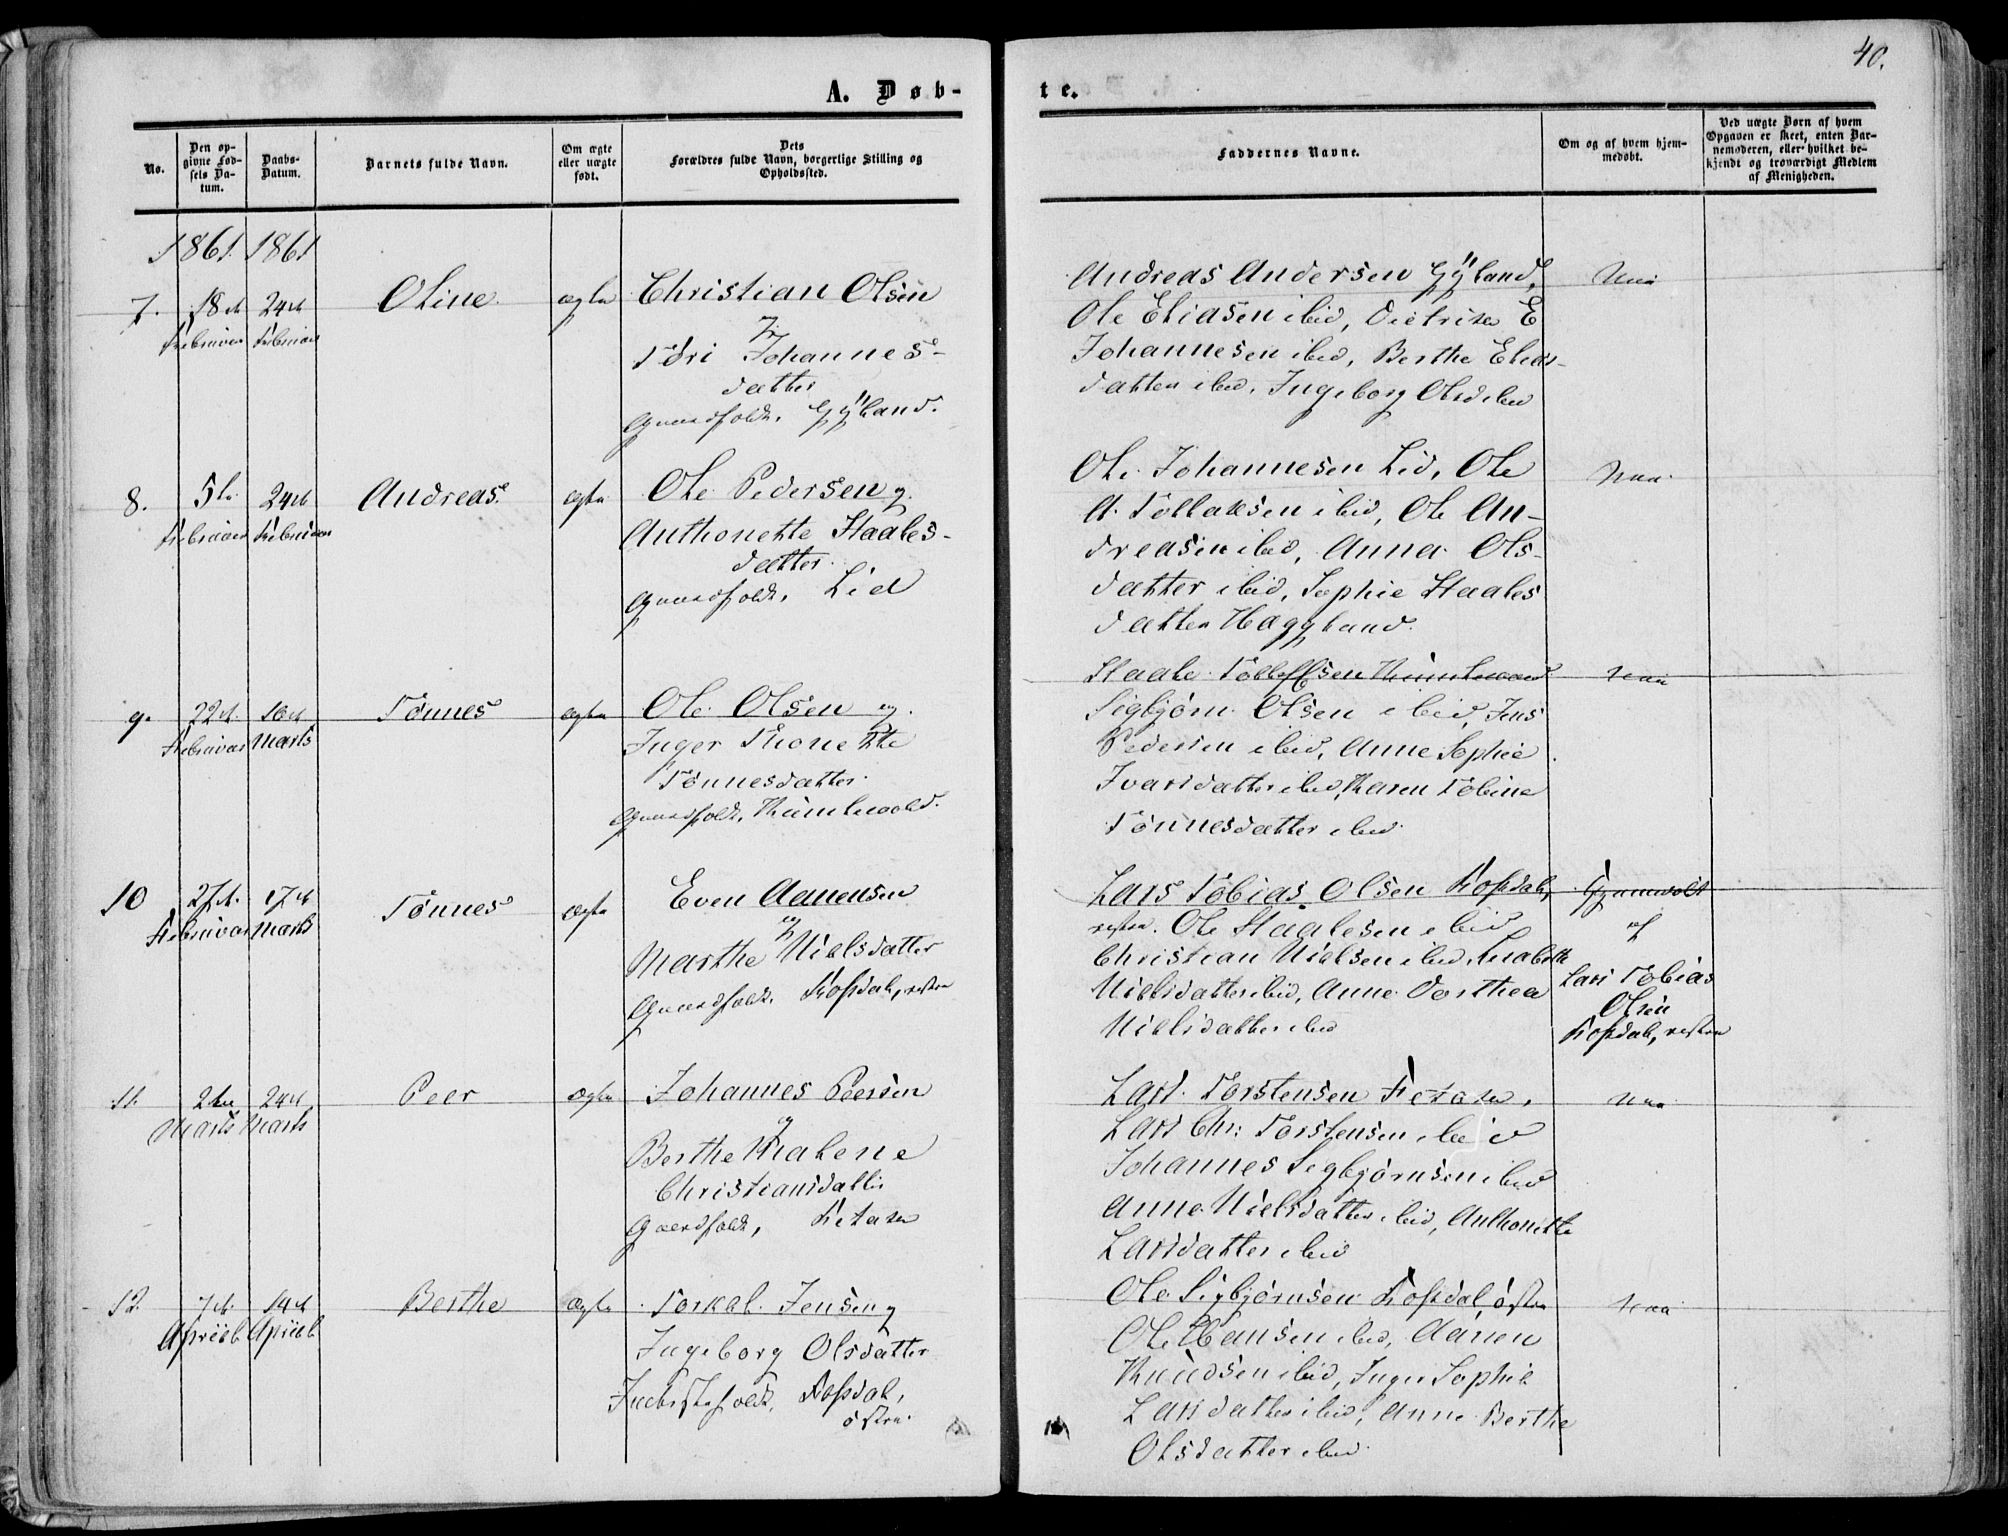 40.
A. Døb-
te.
No.
Den op-
givne Fød-
sels Da-
tum.
Daabs-
Datum.
Barnets fulde Navn.
Om ægte
eller uægte
født.
Dets
Forældres fulde Navn, borgerlige Stilling og
Opholdssted.
Faddernes Navne.
Om og af hvem hjem-
medøbt.
Ved uægte Børn af hvem
Opgaven er skeet, enten Bar-
nemoderen, eller hvilket be-
kjendt og troværdigt Medlem
af Menigheden.
1861. 1861
7.
18de
Februar
24de
Februar
Oline
ægte
Christian Olsen
og
Tøri Johannes-
datter
Gaardfolk, Gÿland.
Andreas Andersen Gÿland,
Ole Eliasen ibid, E
Johannesen ibid, Berthe Elias-
datter ibid, Ingeborg Olsd ibid
Nei
8.
5te
Februar
24de
Februar
Andreas
ægte
Ole Pedersen og
Anthonette Staales-
datter
Gaardfolk, Lid
Ole Johannesen Lid, Ole
A. Tollaksen ibid, Ole An-
dreasen ibid, Anna Ols-
datter ibid, Sophie Staales
datter Haggland.
Nei
9.
22de
Februar
10de
Marts
Tønnes
ægte
Ole Olsen og
Inger Thonette
Tønnesdatter
Gaardfolk,
Staale Tollefsen
Sigbjørn Olsen ibid, Jens
Pedersen ibid, Anne Sophie
Ivarsdatter ibid, Karen Tobine
Tønnesdatter ibid
Nei
10
27de
Februar
17de
Marts
Tønnes
ægte
Even Aanensen
og
Marthe Nielsdatter
Gaardfolk, Rosdal, vestre
Lars Tobias Olsen Rosdal,
vestre. Ole Staalesen ibid
Christian Nielsen ibid,
Nielsdatter ibid, Anne Dorthea
Nielsdatter ibid
Hjemmedøbt
af
Lars Tobias
Olsen
Rosdal, vestre
11.
2den
Marts
24de
Marts
Peer
ægte
Johannes Peersen
og
Berthe Malene
Christiansdatter
Gaardfolk,
Lars Torstensen
Lars Chr: Torstensen ibid
Johannes Sigbjørnsen ibid
Anne Nielsdatter ibid, Anthonette
Larsdatter ibid
Nei
12.
7de
April
14de
April
Berthe
ægte
Torkal Jensen og
Ingeborg Olsdatter
Inderstfolk, Rosdal,
østre
Ole Sigbjørnsen Rosdal, østre
Ole Hansen ibid, Aanen
Knudsen ibid, Inger Sophie
Larsdatter ibid, Anne Berthe
Olsdatter ibid
Nei